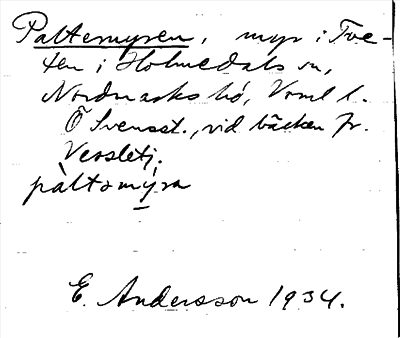 Paltemyren, myr i Tve-
ten i Holmedals sn,
Nordmarks hd, Vrml l.
Ö Svensst., vid bäcken fr.
Versletj.
pàltəmýra
E. Andersson 1934.